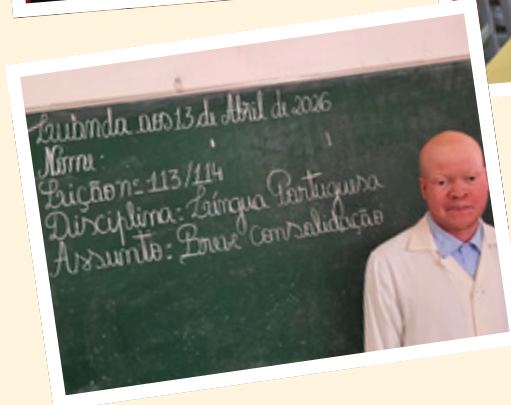 Luanda aos 13 de Abril de 2026
Nome:
Lição nº 113/114
Disciplina: Língua Portuguesa
Assunto: Breve consolidação